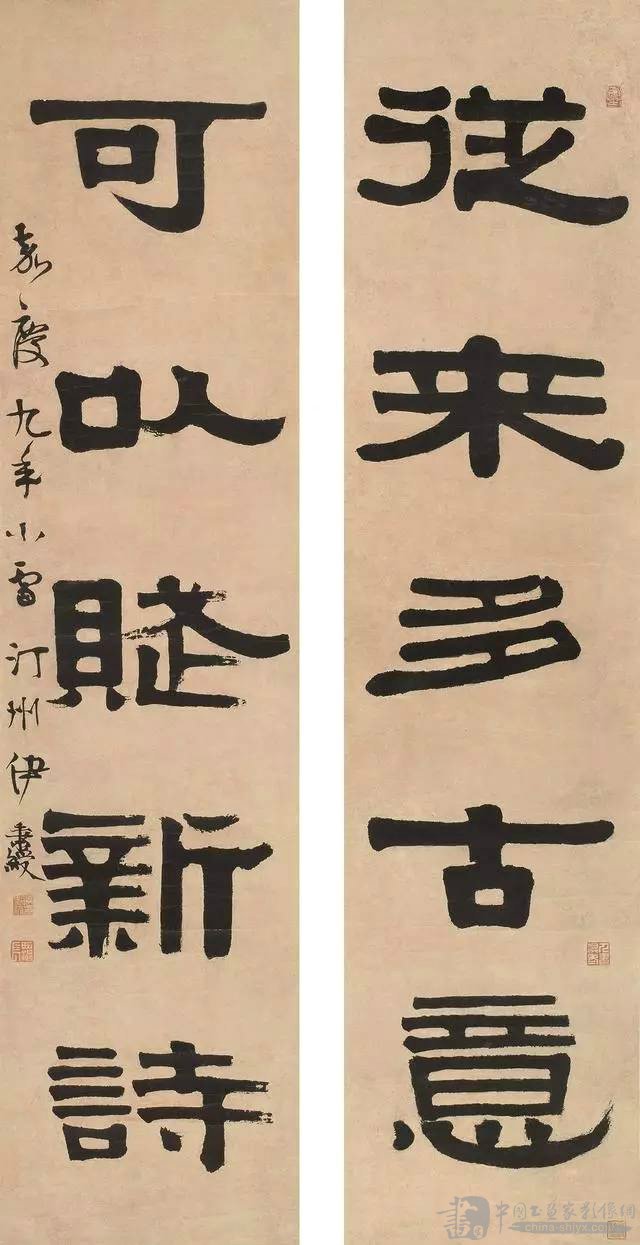 從来多古意
可以賦新詩
嘉慶九年小雪汀州伊秉綬
中國工藝家影像網
china-shjyx.com